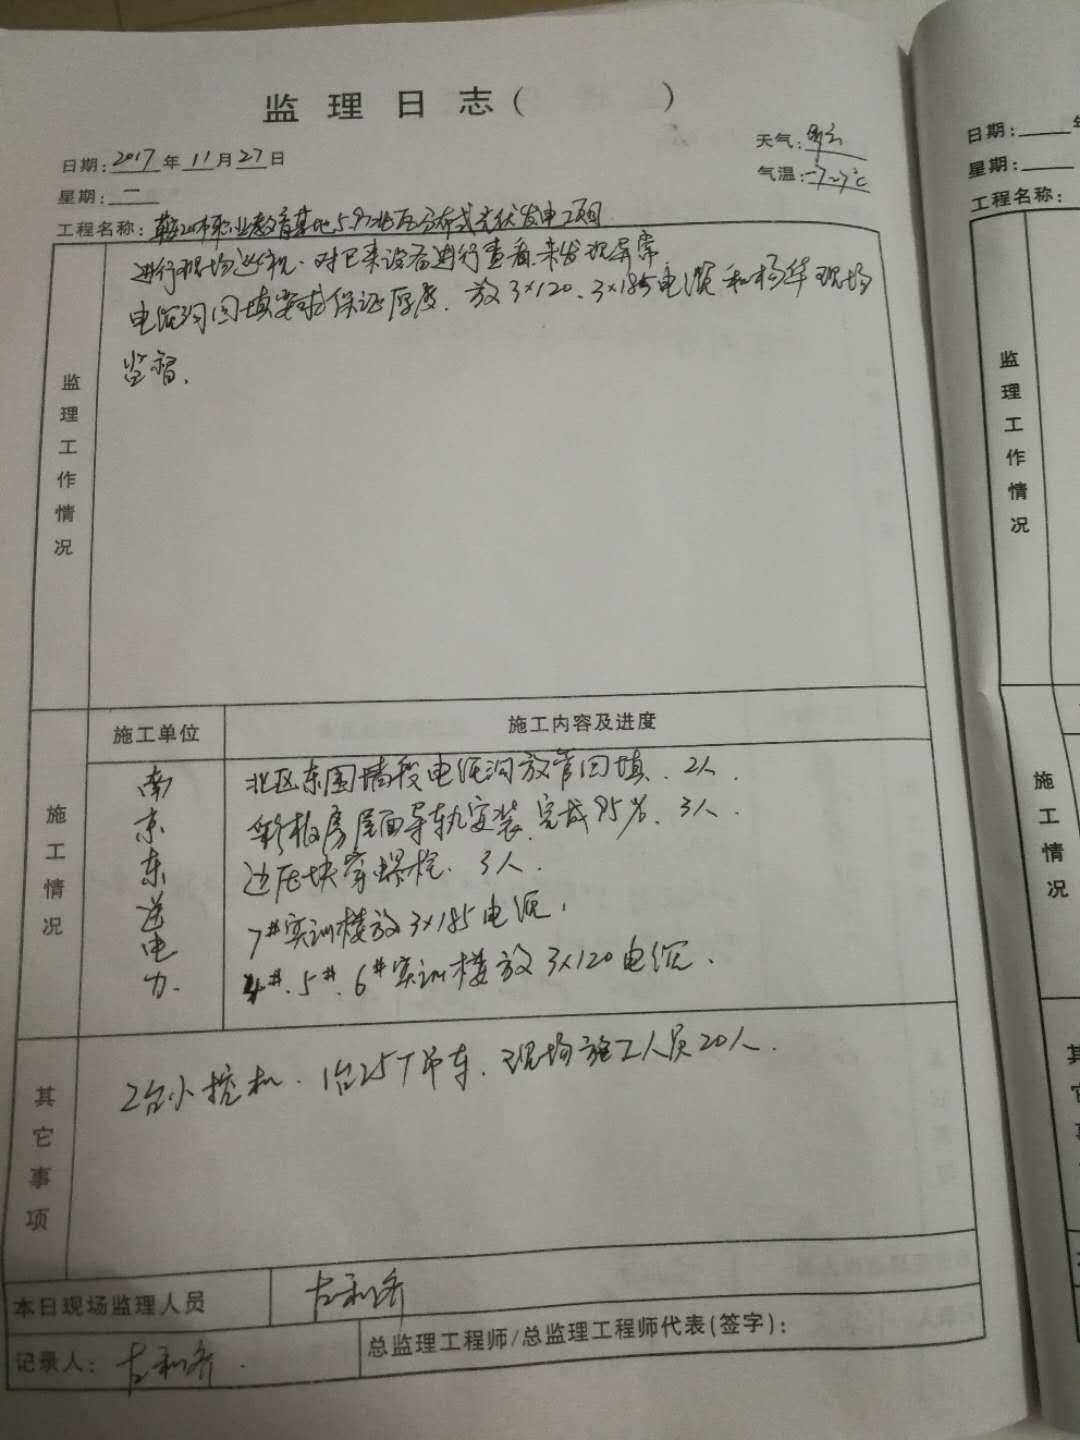 监理日志(          )
日期:2017年11月27日
天气:多云
星期:一
气温:-7~7℃
工程名称:鞍山市职业教育基地5.97兆瓦分布式光伏发电工程项目
监理工作情况
进行现场巡视、对已来设备进行查看未发现异常
电缆沟回填要求保证厚度、放3×120、3×185电缆和杨华现场
监督、
施工情况
施工单位
施工内容及进度
南京东送电力.
北区东围墙段电缆沟放管回填、2人.
彩板房屋面导轨安装、完成95%、3人.
边压块穿螺栓、3人.
7#实训楼放3×185电缆,
4#、5#、6#实训楼放3×120电缆、
其它事项
2台小挖机、1台25T吊车、现场施工人员20人.
本日现场监理人员
记录人:
总监理工程师/总监理工程师代表(签字):
日期:
年
星期:
工程名称:
监理工作情况
施工情况